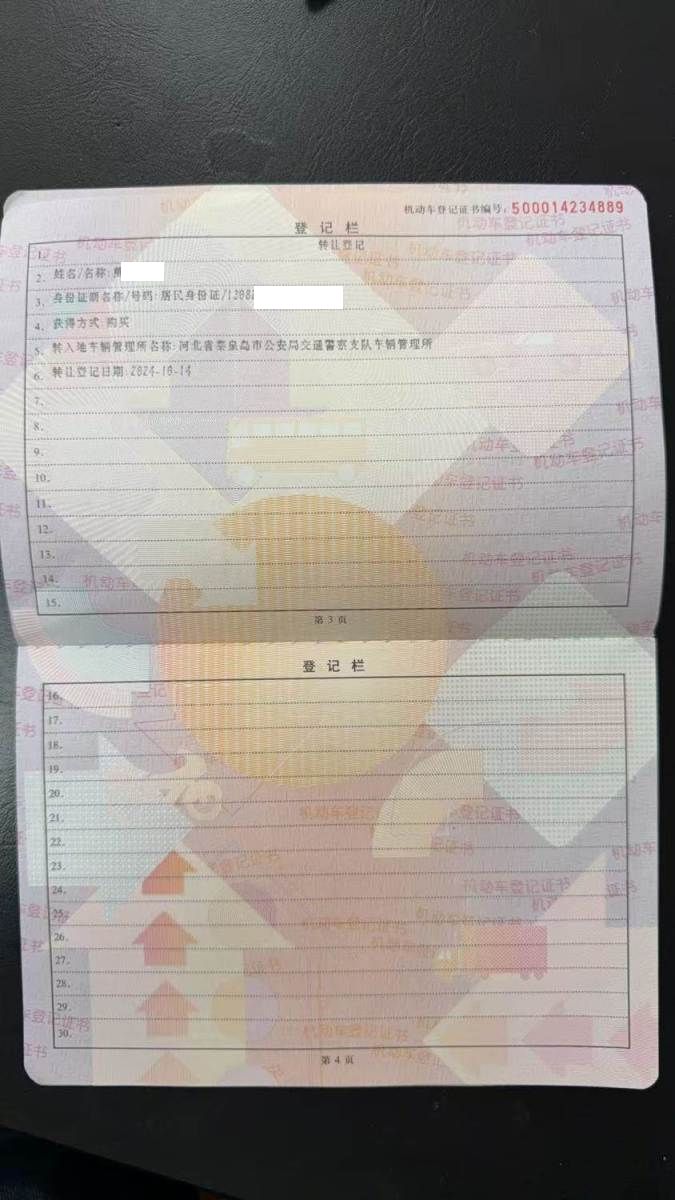 机动车登记证书编号：500014234889
登 记 栏
1. 转让登记
2. 姓名/名称：
3. 身份证明名称/号码：居民身份证/1308
4. 获得方式：购买
5. 转入地车辆管理所名称：河北省秦皇岛市公安局交通警察支队车辆管理所
6. 转让登记日期：2024-10-14
7.
8.
9.
10.
11.
12.
13.
14.
15.
第 3 页
登 记 栏
16.
17.
18.
19.
20.
21.
22.
23.
24.
25.
26.
27.
28.
29.
30.
第 4 页